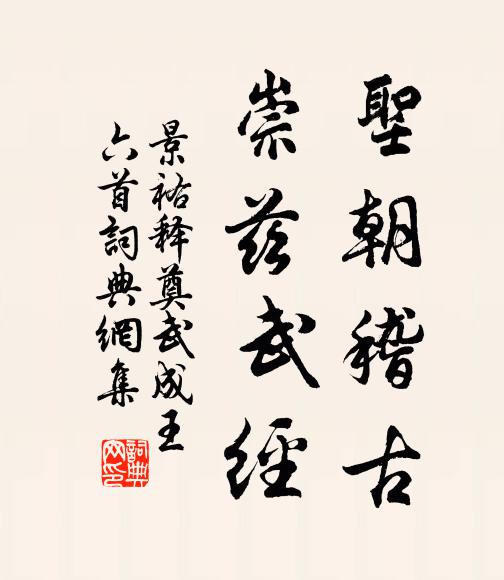 聖朝稽古
崇茲武經
景祐釋奠武成王
六首詞典網集
詞典網印